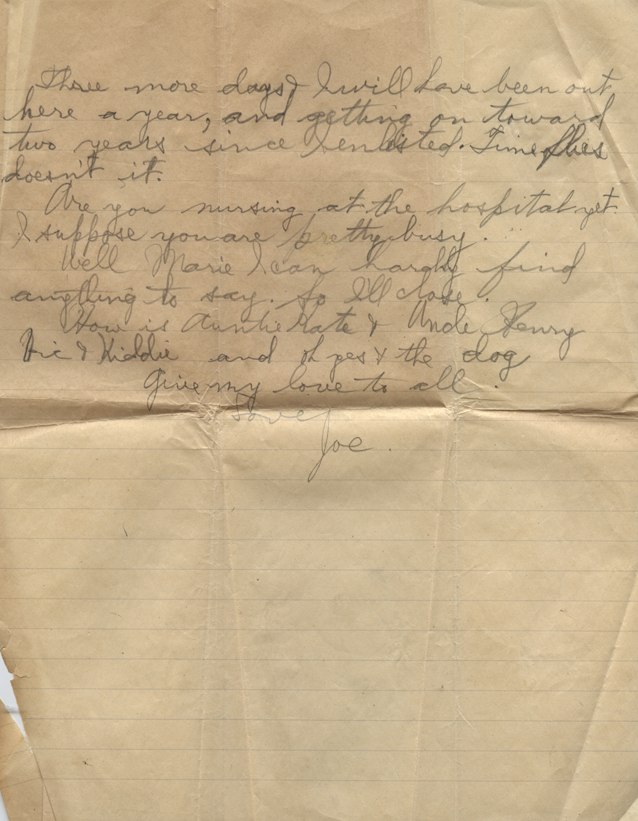 Three more days & I will have been out
here a year, and getting on toward
two years since I enlisted. Time flies
doesn't it.
Are you nursing at the hospital yet.
I suppose you are pretty busy.
Well Marie I can hardly find
anything to say. So I'll close.
How is Auntie Kate & Uncle Henry
Vic & Kiddie and oh yes & the dog
Give my love to all.
Love
Joe.